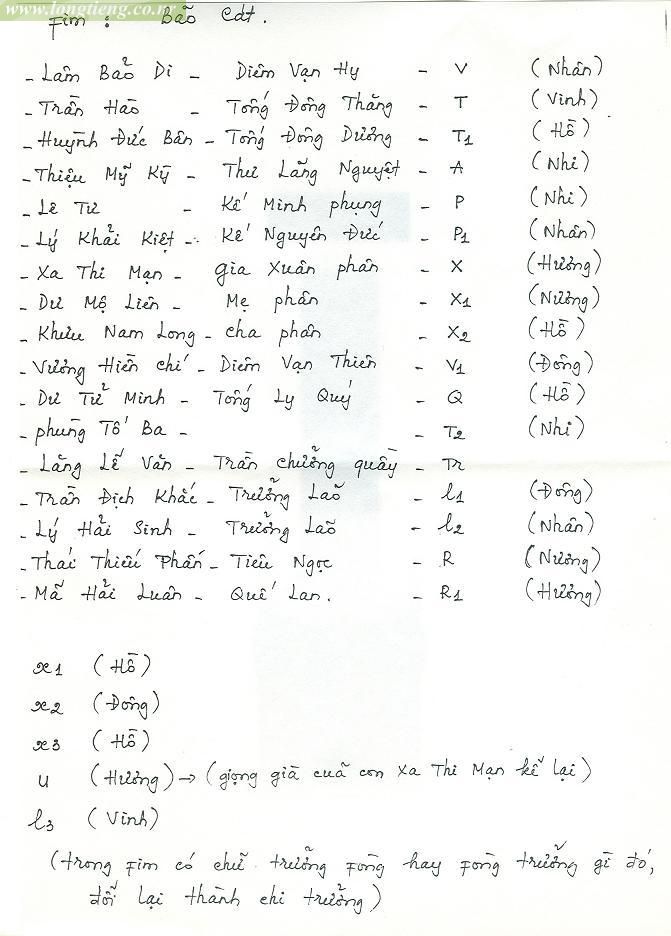 www.longtieng.co.nr
Fim : Bão Cát.
- Lâm Bảo Di - Diêm Vạn Hy - V (Nhân)
- Trần Hào - Tống Đông Thăng - T (Vinh)
- Huỳnh Đức Bân - Tống Đông Dương - T1 (Hồ)
- Thiệu Mỹ Kỳ - Thư Lăng Nguyệt - A (Nhi)
- Lê Tư - Kế Minh phụng - P (Nhi)
- Lý Khải Kiệt - Kế Nguyên Đức - P1 (Nhân)
- Xa Thi Mạn - gia Xuân phân - X (Hương)
- Dư Mộ Liên - Mẹ phân - X1 (Nương)
- Khưu Nam Long - cha phân - X2 (Hồ)
- Vương Hiền chí - Diêm Vạn Thiên - V1 (Đông)
- Dư Tử Minh - Tống Ly Quý - Q (Hồ)
- phùng Tố Ba - - T2 (Nhi)
- Lăng Lễ Văn - Trần chưởng quầy - Tr
- Trần Địch Khắc - Trưởng Lão - l1 (Đông)
- Lý Hải Sinh - Trưởng Lão - l2 (Nhân)
- Thái Thiếu Phấn - Tiêu Ngọc - R (Nương)
- Mã Hải Luân - Quế Lan. - R1 (Hương)
x1 (Hồ)
x2 (Đông)
x3 (Hồ)
u (Hương) → (giọng già cuã con Xa Thi Mạn kể lại)
l3 (Vinh)
(trong fim có chữ trưởng fòng hay fòng trưởng gì đó,
đổi lại thành chi trưởng)